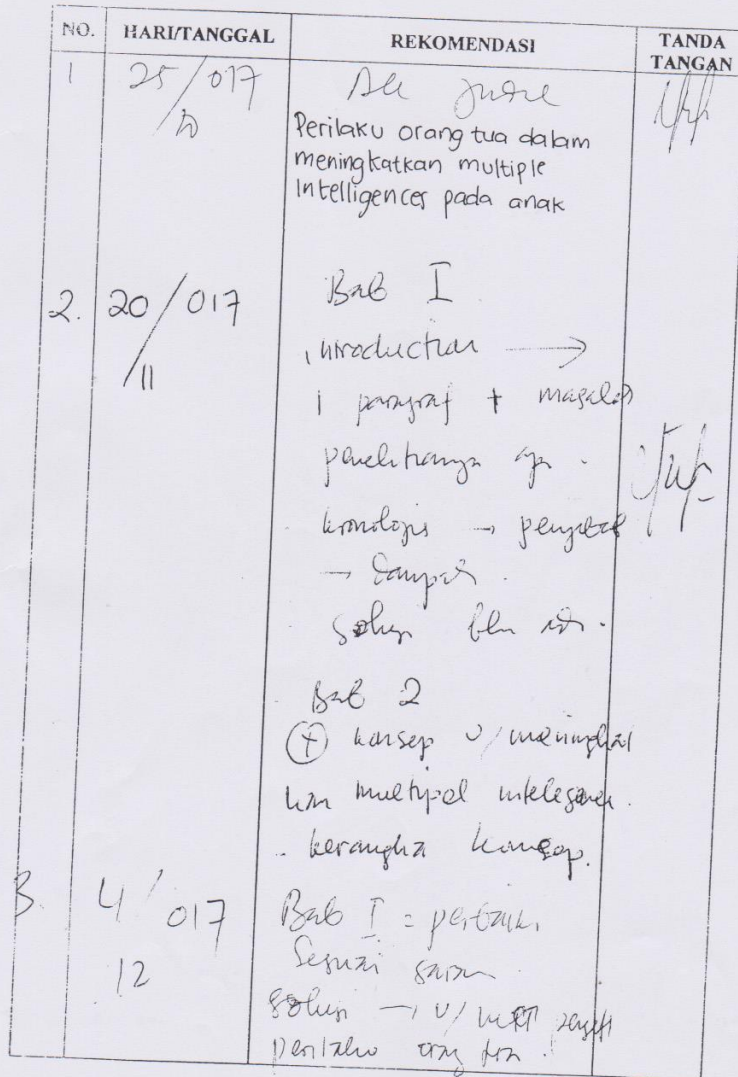 NO. HARI/TANGGAL REKOMENDASI TANDA TANGAN
1 25/017
Perilaku orang tua dalam
meningkatkan multiple
Intelligences pada anak
2. 20/017 Bab I
/11 introduction →
1 paragraf + masalah
penelitiannya apa.
kronologis → penyebab
→ dampak.
Solusi blm ada.
Bab 2
+ konsep u/ meningkat
kan multipel
- kerangka konsep.
3 4/017 Bab I = perbaiki
12 Sesuai saran
Solusi → u/
perilaku orang tua.